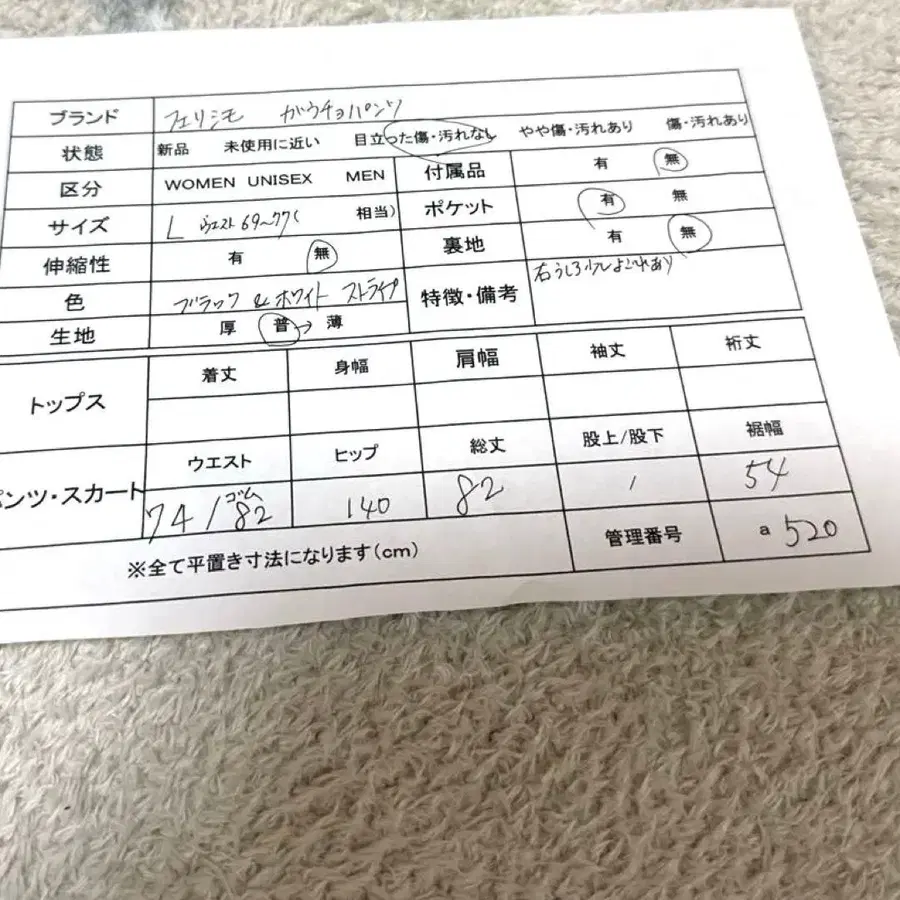 ブランド フェリシモ ガウチョパンツ
状態 新品 未使用に近い 目立った傷・汚れなし やや傷・汚れあり 傷・汚れあり
区分 WOMEN UNISEX MEN 付属品 有 無
サイズ L ウエスト69~77( 相当) ポケット 有 無
伸縮性 有 無 裏地 有 無
色 ブラック & ホワイト ストライプ 特徴・備考 右うしろ少しよごれあり
生地 厚 普→薄
トップス 着丈 身幅 肩幅 袖丈 裄丈
パンツ・スカート ウエスト ヒップ 総丈 股上/股下 裾幅
74/ゴム82 140 82 / 54
※全て平置き寸法になります(cm) 管理番号 a 520